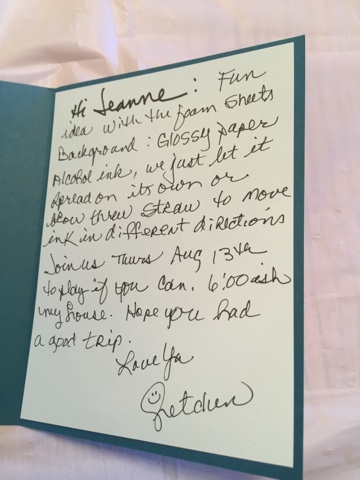 Hi Jeanne: Fun
idea with the foam sheets
Background: Glossy paper
Alcohol ink, we just let it
spread on its own or
blow threw straw to move
ink in different directions
Join us Thurs Aug 13th
to play if you can. 6:00ish
my house. Hope you had
a good trip.
Love Ya
Gretchen